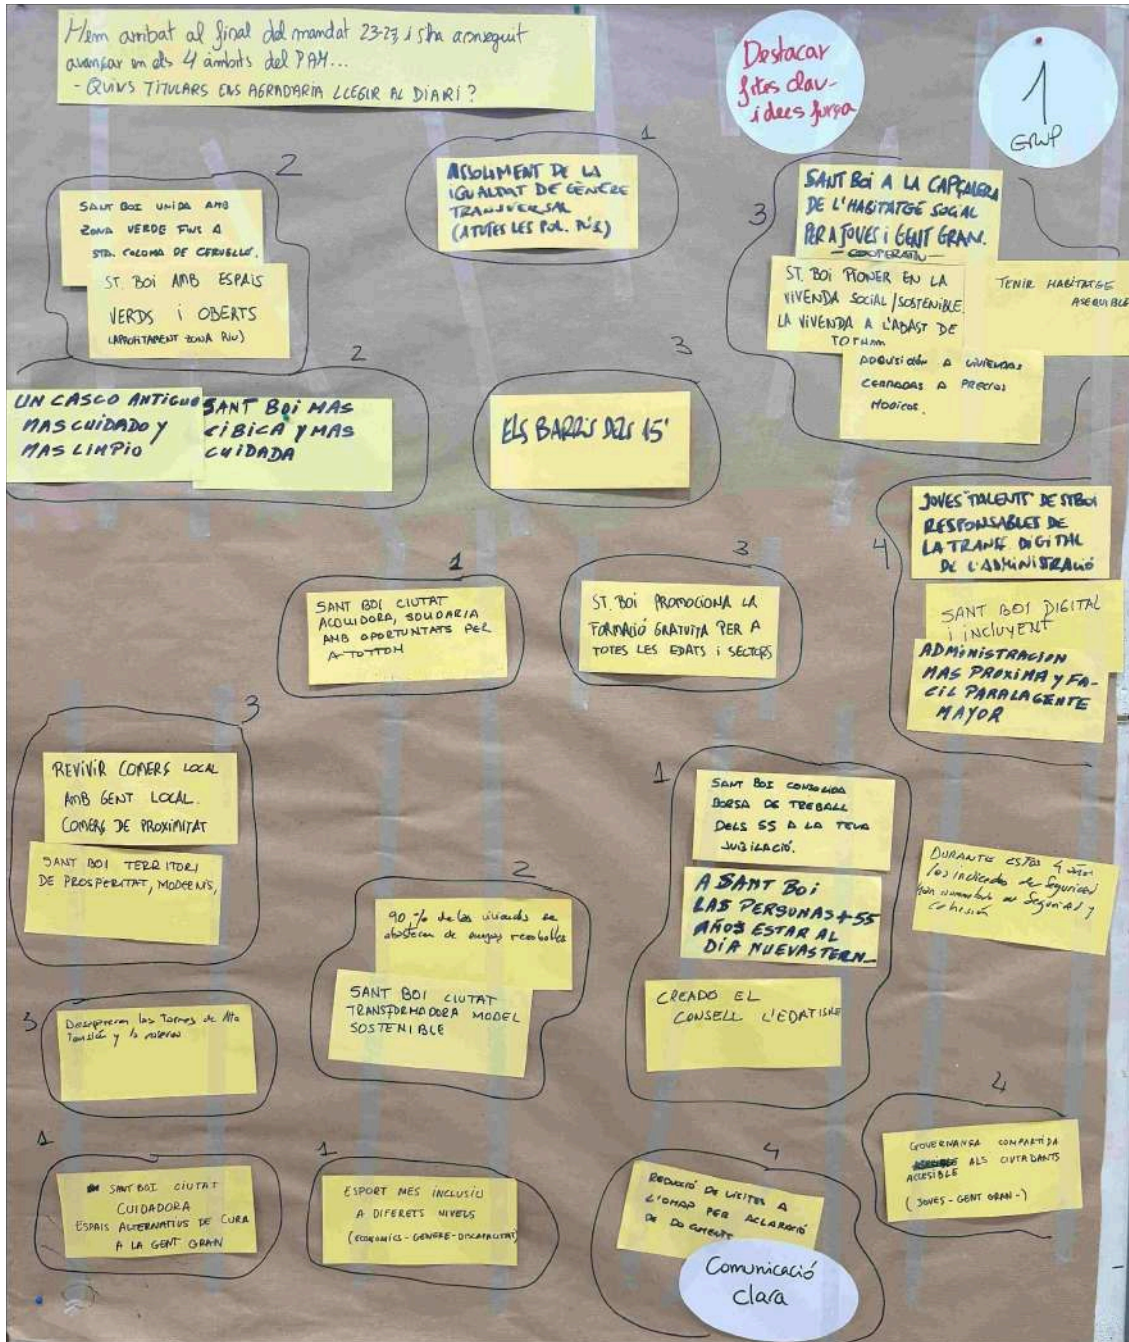 Hem arribat al final del mandat 23-27 i s'ha aconseguit
avançar en els 4 àmbits del PAM...
- QUINS TITULARS ENS AGRADARIA LLEGIR AL DIARI?
Destacar
fites clau
i idees força
1
GRUP
2
SANT BOI UNIDA AMB
ZONA VERDE FINS A
STA. COLOMA DE CERVELLÓ.
ST. BOI AMB ESPAIS
VERDS I OBERTS
(APROFITAMENT ZONA RIU)
1
ASSOLIMENT DE LA
IGUALTAT DE GÈNERE
TRANSVERSAL
(A TOTES LES POL. PÚB.)
3
SANT BOI A LA CAPÇALERA
DE L'HABITATGE SOCIAL
PER A JOVES I GENT GRAN.
- COOPERATIU -
ST. BOI PIONER EN LA
VIVENDA SOCIAL/SOSTENIBLE.
LA VIVENDA A L'ABAST DE
TOTHOM
TENIR HABITATGE
ASEQUIBLE
ADQUISICIÓN A VIVIENDAS
CERRADAS A PRECIOS
MODICOS.
2
UN CASCO ANTIGUO
MAS CUIDADO Y
MAS LIMPIO
SANT BOI MAS
CIBICA Y MAS
CUIDADA
3
ELS BARRIS DELS 15'
4
JOVES "TALENTS" DE ST BOI
RESPONSABLES DE
LA TRANSF. DIGITAL
DE L'ADMINISTRACIÓ
SANT BOI DIGITAL
I INCLUYENT
ADMINISTRACION
MAS PROXIMA Y FA-
CIL PARA LA GENTE
MAYOR
1
SANT BOI CIUTAT
ACOLLIDORA, SOLIDARIA
AMB OPORTUNTATS PER
A TOTTOM
3
ST. BOI PROMOCIONA LA
FORMACIÓ GRATUITA PER A
TOTES LES EDATS I SECTORS
3
REVIVIR COMERS LOCAL
AMB GENT LOCAL.
COMERS DE PROXIMITAT
SANT BOI TERRITORI
DE PROSPERITAT, MODERNIS,
1
SANT BOI CONSOLIDA
BORSA DE TREBALL
DELS 55 A LA TEVA
JUBILACIÓ.
A SANT BOI
LAS PERSONAS + 55
AÑOS ESTAR AL
DÍA NUEVAS TERN_
CREADO EL
CONSELL L'EDATISME
DURANTE ESTOS 4 años
los indicados de Seguridad
han aumentado en Seguridad y
Cohesión
2
90,% de las viviendas se
abastecen de energías renovables
SANT BOI CIUTAT
TRANSFORMADORA MODEL
SOSTENIBLE
3
Desaparecen las Torres de Alta
Tensión y la
1
SANT BOI CIUTAT
CUIDADORA
ESPAIS ALTERNATIUS DE CURA
A LA GENT GRAN
1
ESPORT MES INCLUSIU
A DIFERETS NIVELS
(ECONOMICS - GENERE - DISCAPACITAT)
4
REDUCIÓ DE VISITES A
L'OMAP PER ACLARACIÓ
DE DOCUMENTS
Comunicació
clara
4
GOVERNANÇA COMPARTIDA
ALS CIUTADANTS
ACCESIBLE
(JOVES - GENT GRAN -)